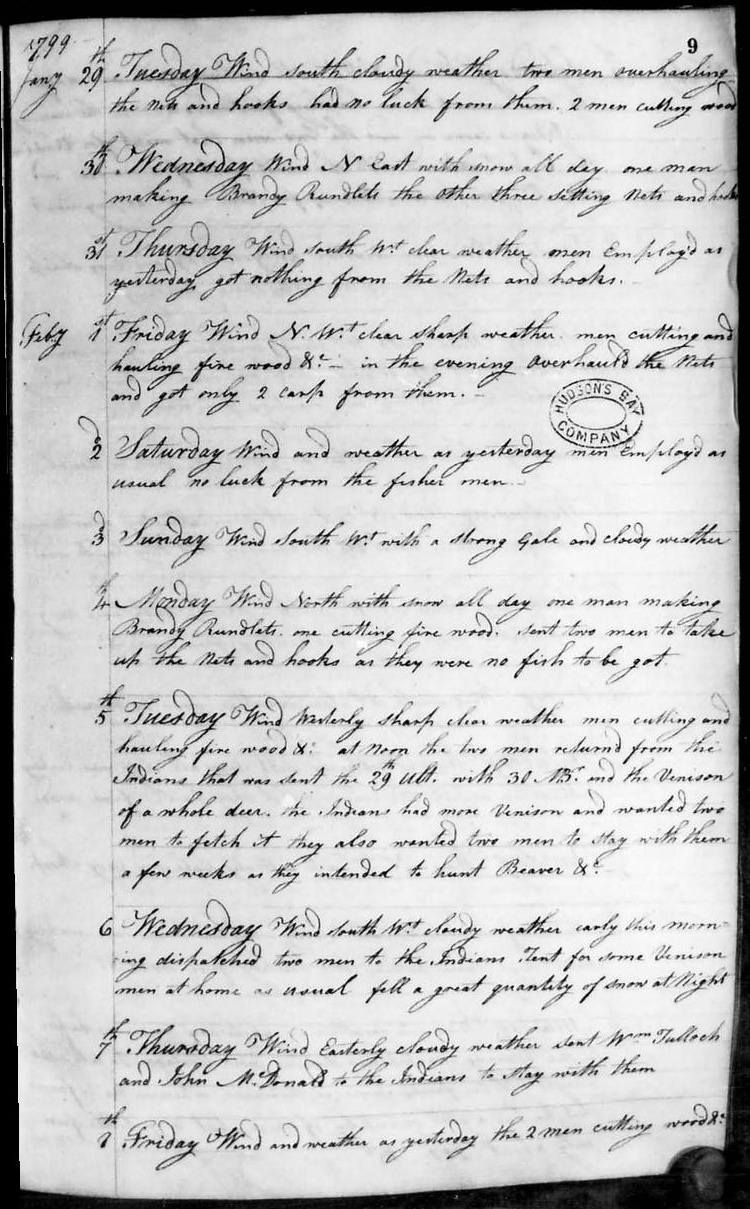 9
1799
Jany 29th Tuesday Wind south cloudy weather two men overhauling
the Nets and hooks had no luck from them. 2 men cutting wood
30th Wednesday Wind N East with snow all day one man
making Brandy Rundlets the other three setting Nets and hooks
31st Thursday Wind south Wt clear weather men Employ'd as
yesterday got nothing from the Nets and hooks.
Feby 1st Friday Wind N. Wt clear sharp weather. men cutting and
hauling fire wood &c - in the evening overhaul'd the Nets
and got only 2 carp from them.
HUDSON'S BAY
COMPANY
2d Saturday Wind and weather as yesterday men Employ'd as
usual no luck from the fisher men.
3d Sunday Wind South Wt with a strong Gale and cloudy weather
4th Monday Wind North with snow all day one man making
Brandy Rundlets. one cutting fire wood. sent two men to take
up the Nets and hooks as they were no fish to be got.
5th Tuesday Wind Westerly sharp clear weather men cutting and
hauling fire wood &c at Noon the two men return'd from the
Indians that was sent the 29th Ult. with 30 MBr. and the Venison
of a whole deer. the Indians had more Venison and wanted two
men to fetch it they also wanted two men to stay with them
a few weeks as they intended to hunt Beaver &c
6 Wednesday Wind south Wt cloudy weather early this morn-
ing dispatched two men to the Indians Tent for some Venison
men at home as usual fell a great quantity of snow at Night
7th Thursday Wind Easterly cloudy weather sent Wm Tulloch
and John McDonald to the Indians to stay with them
8th Friday Wind and weather as yesterday the 2 men cutting wood &c